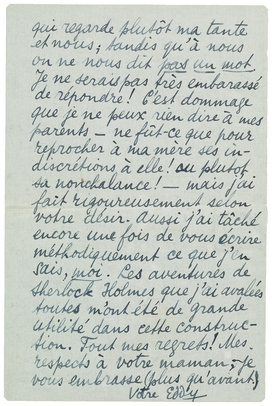 qui regarde plutôt ma tante
et nous; tandis qu'à nous
on ne nous dit pas un mot.
Je ne serais pas très embarassé
de répondre! C'est dommage
que je ne peux rien dire à mes
parents – ne fût-ce que pour
reprocher à ma mère ses in-
discrétions à elle! ou plutôt
sa nonchalance! – mais j'ai
fait rigoureusement selon
votre désir. Aussi j'ai tâché
encore une fois de vous écrire
méthodiquement ce que j'en
sais, moi. Les aventures de
Sherlock Holmes que j'ai avalées
toutes m'ont été de grande
utilité dans cette construc-
tion. Tout mes regrets! Mes
respects à votre maman; je
vous embrasse (plus qu'avant)
Votre Eddy